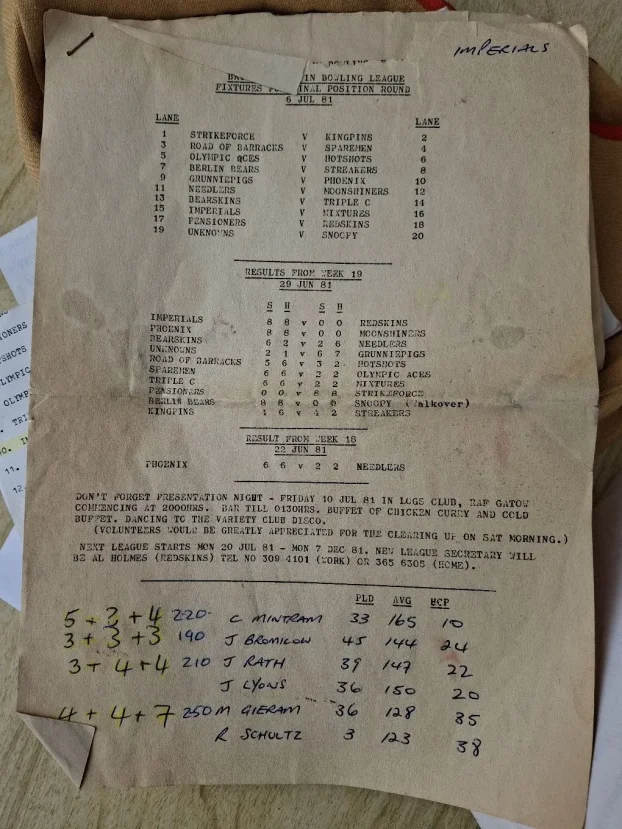 IMPERIALS
IN BOWLING LEAGUE
FIXTURES INAL POSITION ROUND
6 JUL 81
LANE LANE
1 STRIKEFORCE V KINGPINS 2
3 ROAD OF BARRACKS V SPAREMEN 4
5 OLYMPIC ACES V HOTSHOTS 6
7 BERLIN BEARS V STREAKERS 8
9 GRUNNIEPIGS V PHOENIX 10
11 NEEDLERS V MOONSHINERS 12
13 BEARSKINS V TRIPLE C 14
15 IMPERIALS V MIXTURES 16
17 PENSIONERS V REDSKINS 18
19 UNKNOWNS V SNOOPY 20
RESULTS FROM WEEK 19
29 JUN 81
S H S H
IMPERIALS 8 8 v 0 0 REDSKINS
PHOENIX 8 8 v 0 0 MOONSHINERS
BEARSKINS 6 2 v 2 6 NEEDLERS
UNKNOWNS 2 1 v 6 7 GRUNNIEPIGS
ROAD OF BARRACKS 5 6 v 3 2 HOTSHOTS
SPAREMEN 6 6 v 2 2 OLYMPIC ACES
TRIPLE C 6 6 v 2 2 MIXTURES
PENSIONERS 0 0 v 8 8 STRIKEFORCE
BERLIN BEARS 8 8 v 0 0 SNOOPY (Walkover)
KINGPINS 4 6 v 4 2 STREAKERS
RESULT FROM WEEK 18
22 JUN 81
PHOENIX 6 6 v 2 2 NEEDLERS
DON'T FORGET PRESENTATION NIGHT - FRIDAY 10 JUL 81 IN LOGS CLUB, RAF GATOW
COMMENCING AT 2000HRS. BAR TILL 0130HRS. BUFFET OF CHICKEN CURRY AND COLD
BUFFET. DANCING TO THE VARIETY CLUB DISCO.
(VOLUNTEERS WOULD BE GREATLY APPRECIATED FOR THE CLEARING UP ON SAT MORNING.)
NEXT LEAGUE STARTS MON 20 JUL 81 - MON 7 DEC 81. NEW LEAGUE SECRETARY WILL
BE AL HOLMES (REDSKINS) TEL NO 309 4101 (WORK) OR 365 6305 (HOME).
PLD AVG HCP
5 + 3 + 4 220 C MINTRAM 33 165 10
3 + 3 + 3 190 J BROMILOW 45 144 24
3 + 4 + 4 210 J RATH 39 147 22
J LYONS 36 150 20
4 + 4 + 7 250 M GIERAM 36 128 35
R SCHULTZ 3 123 38